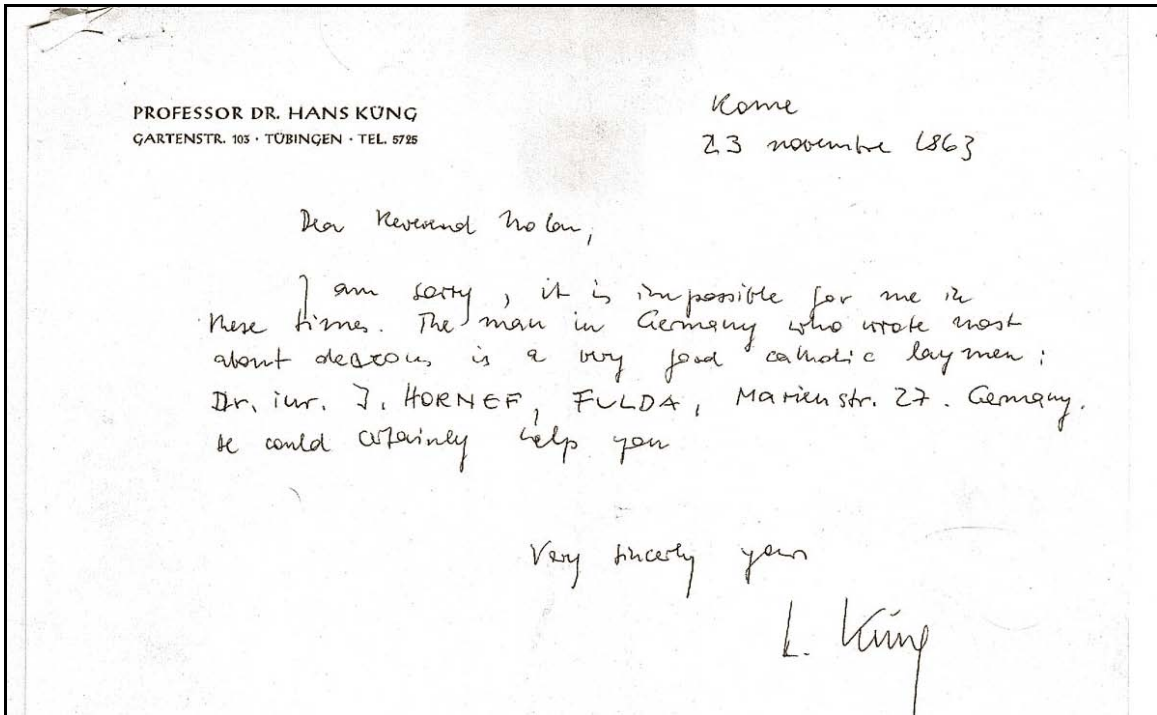 PROFESSOR DR. HANS KÜNG
GARTENSTR. 103 · TÜBINGEN · TEL. 5725
Rome
23 novembre 1963
Dear Reverend Nolan,
I am sorry, it is impossible for me in
these times. The man in Germany who wrote most
about deacons is a very good catholic laymen:
Dr. iur. J. HORNEF, FULDA, Marienstr. 27. Germany.
He could certainly help you
Very sincerly yours
H. Küng